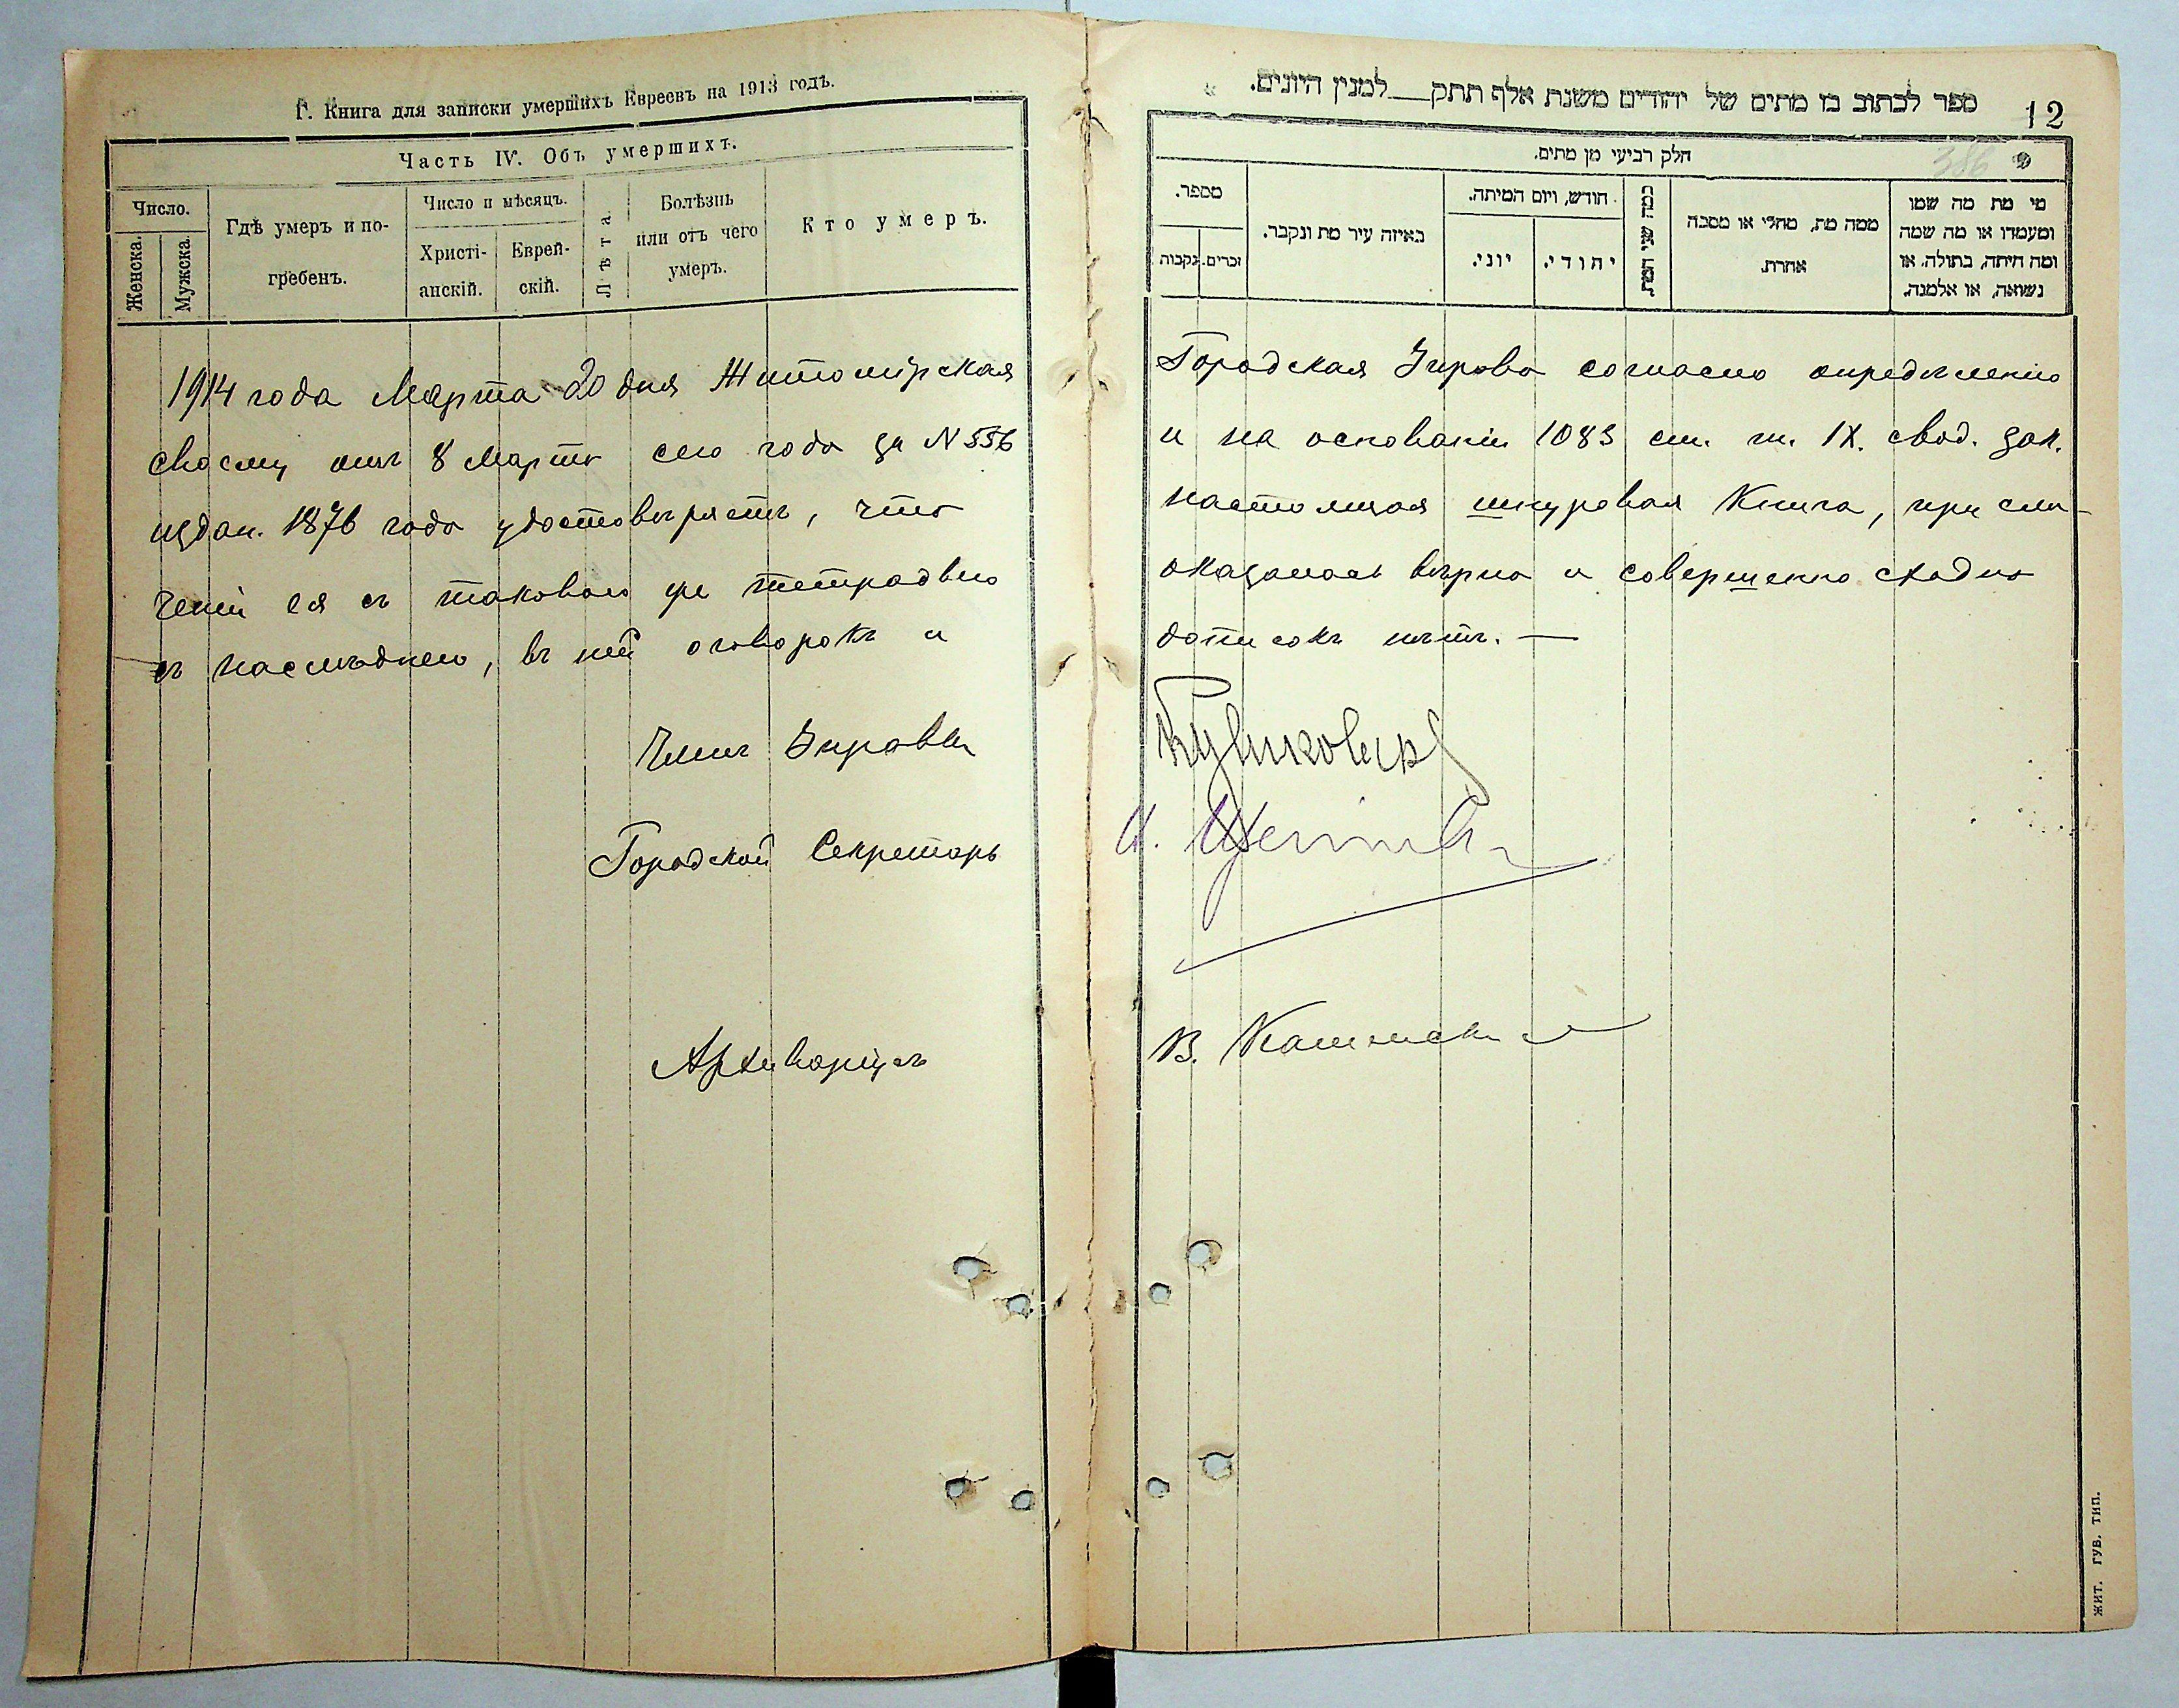 Г. Книга для записки умершихъ Евреевъ на 1913 годъ.
Часть IV. Объ умершихъ.
Число.
Женска.
Мужска.
Гдѣ умеръ и по-
гребенъ.
Число и мѣсяцъ.
Христі-
анскій.
Еврей-
скій.
Лѣта
Болѣзнь
или отъ чего
умеръ.
Кто умеръ.
ספר לכתוב בו מתים של יהודים משנת אלף תתק__למנין היונים.
12
386
חלק רביעי מן מתים.
מספר.
זכרים.
נקבות
באיזה עיר מת ונקבר.
חודש, ויום המיתה.
יוני.
יהודי.
כמה שני המת.
ממה מת, מחלי או מסבה
אחרת.
מי מת מה שמו
ומעמדו או מה שמה
ומה היתה, בתולה, או
נשואה, או אלמנה.
1914 года Марта 20 дня Житомірская Городская Управа согласно опредѣленію
своему отъ 8 Марта сего года за N 556 и на основаніи 1083 ст. т. IX. свод. зак.
издан. 1876 года удостовѣряетъ, что настоящая шнуровая Книга, при сли-
ченіи ея съ таковою же тетрадью оказалась вѣрна и совершенно сходна
съ наслѣднею, въ ней оговорокъ и дописокъ нѣтъ. —
Членъ Управы
Городской Секретарь
Архиваріусъ В.
ЖИТ. ГУБ. ТИП.